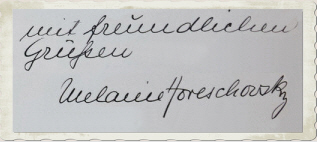 mit freundlichen
Grüßen
Melanie Horeschovsky